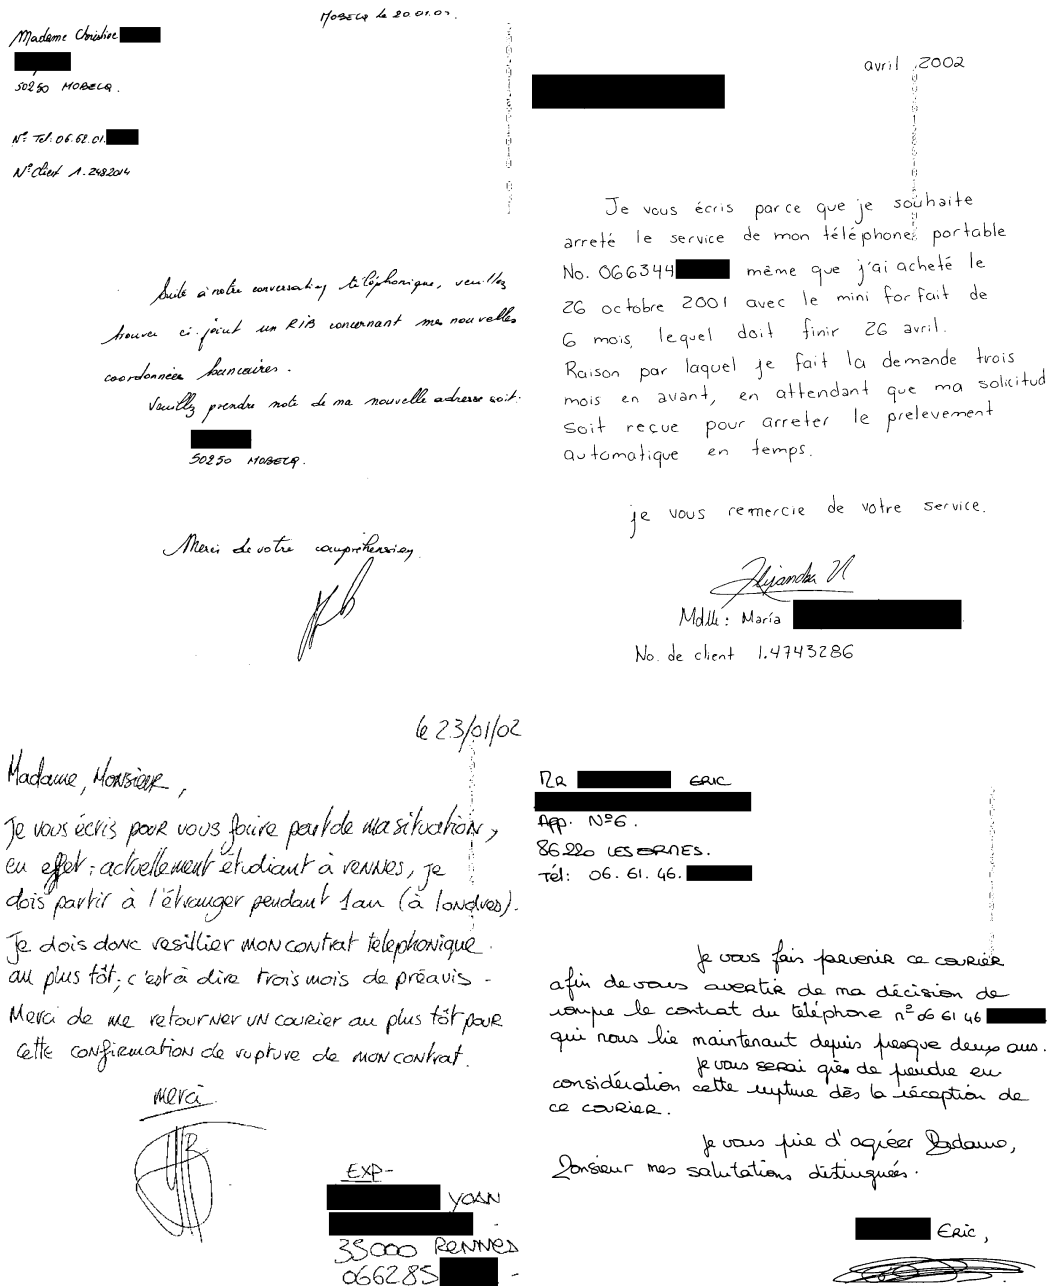 Mobecq le 20.01.02.
Madame Christine
50250 MOBECQ.
N° Tel: 06.62.01.
N° Client 1.2482014
Suite à notre conversation téléphonique, veuillez
trouver ci-joint un RIB concernant mes nouvelles
coordonnées bancaires.
Veuillez prendre note de ma nouvelle adresse soit:
50250 MOBECQ.
Merci de votre compréhension.
avril 2002
Je vous écris parce que je souhaite
arreté le service de mon téléphone portable
No. 066344 même que j'ai acheté le
26 octobre 2001 avec le mini forfait de
6 mois, lequel doit finir 26 avril.
Raison par laquel je fait la demande trois
mois en avant, en attendant que ma solicitud
soit reçue pour arreter le prelevement
automatique en temps.
je vous remercie de votre service.
Alejandra
Mdlle: María
No. de client 1.4743286
le 23/01/02
Madame, Monsieur,
Je vous écris pour vous faire part de ma situation,
en effet; actuellement étudiant à rennes, je
dois partir à l'étranger pendant 1an (à londres).
Je dois donc resillier mon contrat telephonique
au plus tôt; c'est à dire trois mois de préavis -
Merci de me retourner un courier au plus tôt pour
cette confirmation de rupture de mon contrat.
merci
EXP-
YOAN
35000 RENNES
066285 -
MR ERIC
App. N°6.
86220 LES ORMES.
Tél: 06. 61. 46.
Je vous fais parvenir ce courier
afin de vous avertir de ma décision de
rompre le contrat du téléphone n° 06 61 46
qui nous lie maintenant depuis presque deux ans.
Je vous serai grès de prendre en
considération cette rupture dès la réception de
ce courier.
Je vous prie d'agréer Madame,
Monsieur mes salutations distinguées.
Eric,